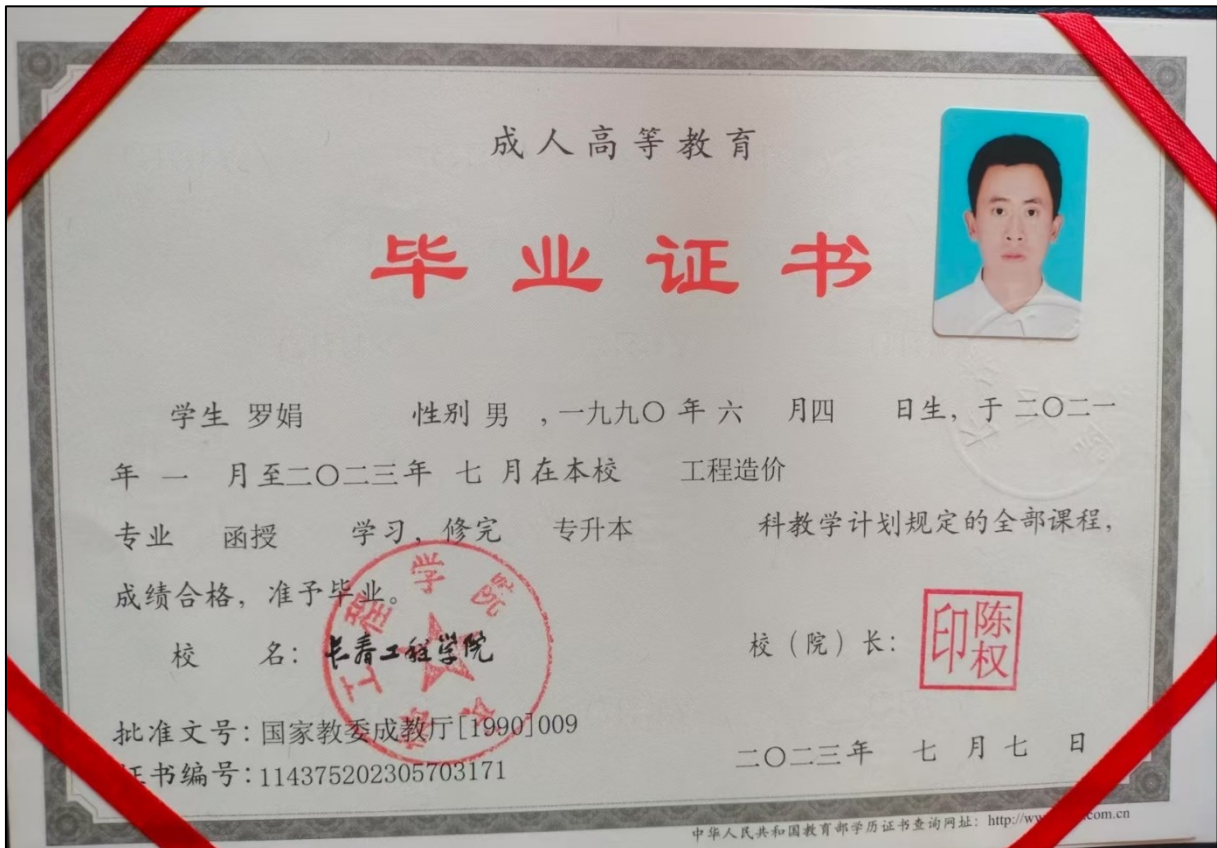 成人高等教育
毕业证书
学生 罗娟 性别 男 ,一九九〇 年 六 月四 日生, 于 二〇二一
年 一 月至二〇二三年 七 月在本校 工程造价
专业 函授 学习, 修完 专升本 科教学计划规定的全部课程,
成绩合格, 准予毕业。
校 名: 长春工程学院
校(院)长: 陈权印
批准文号: 国家教委成教厅[1990]009
证书编号: 114375202305703171
二〇二三年 七 月 七 日
中华人民共和国教育部学历证书查询网址: http://ww com.cn